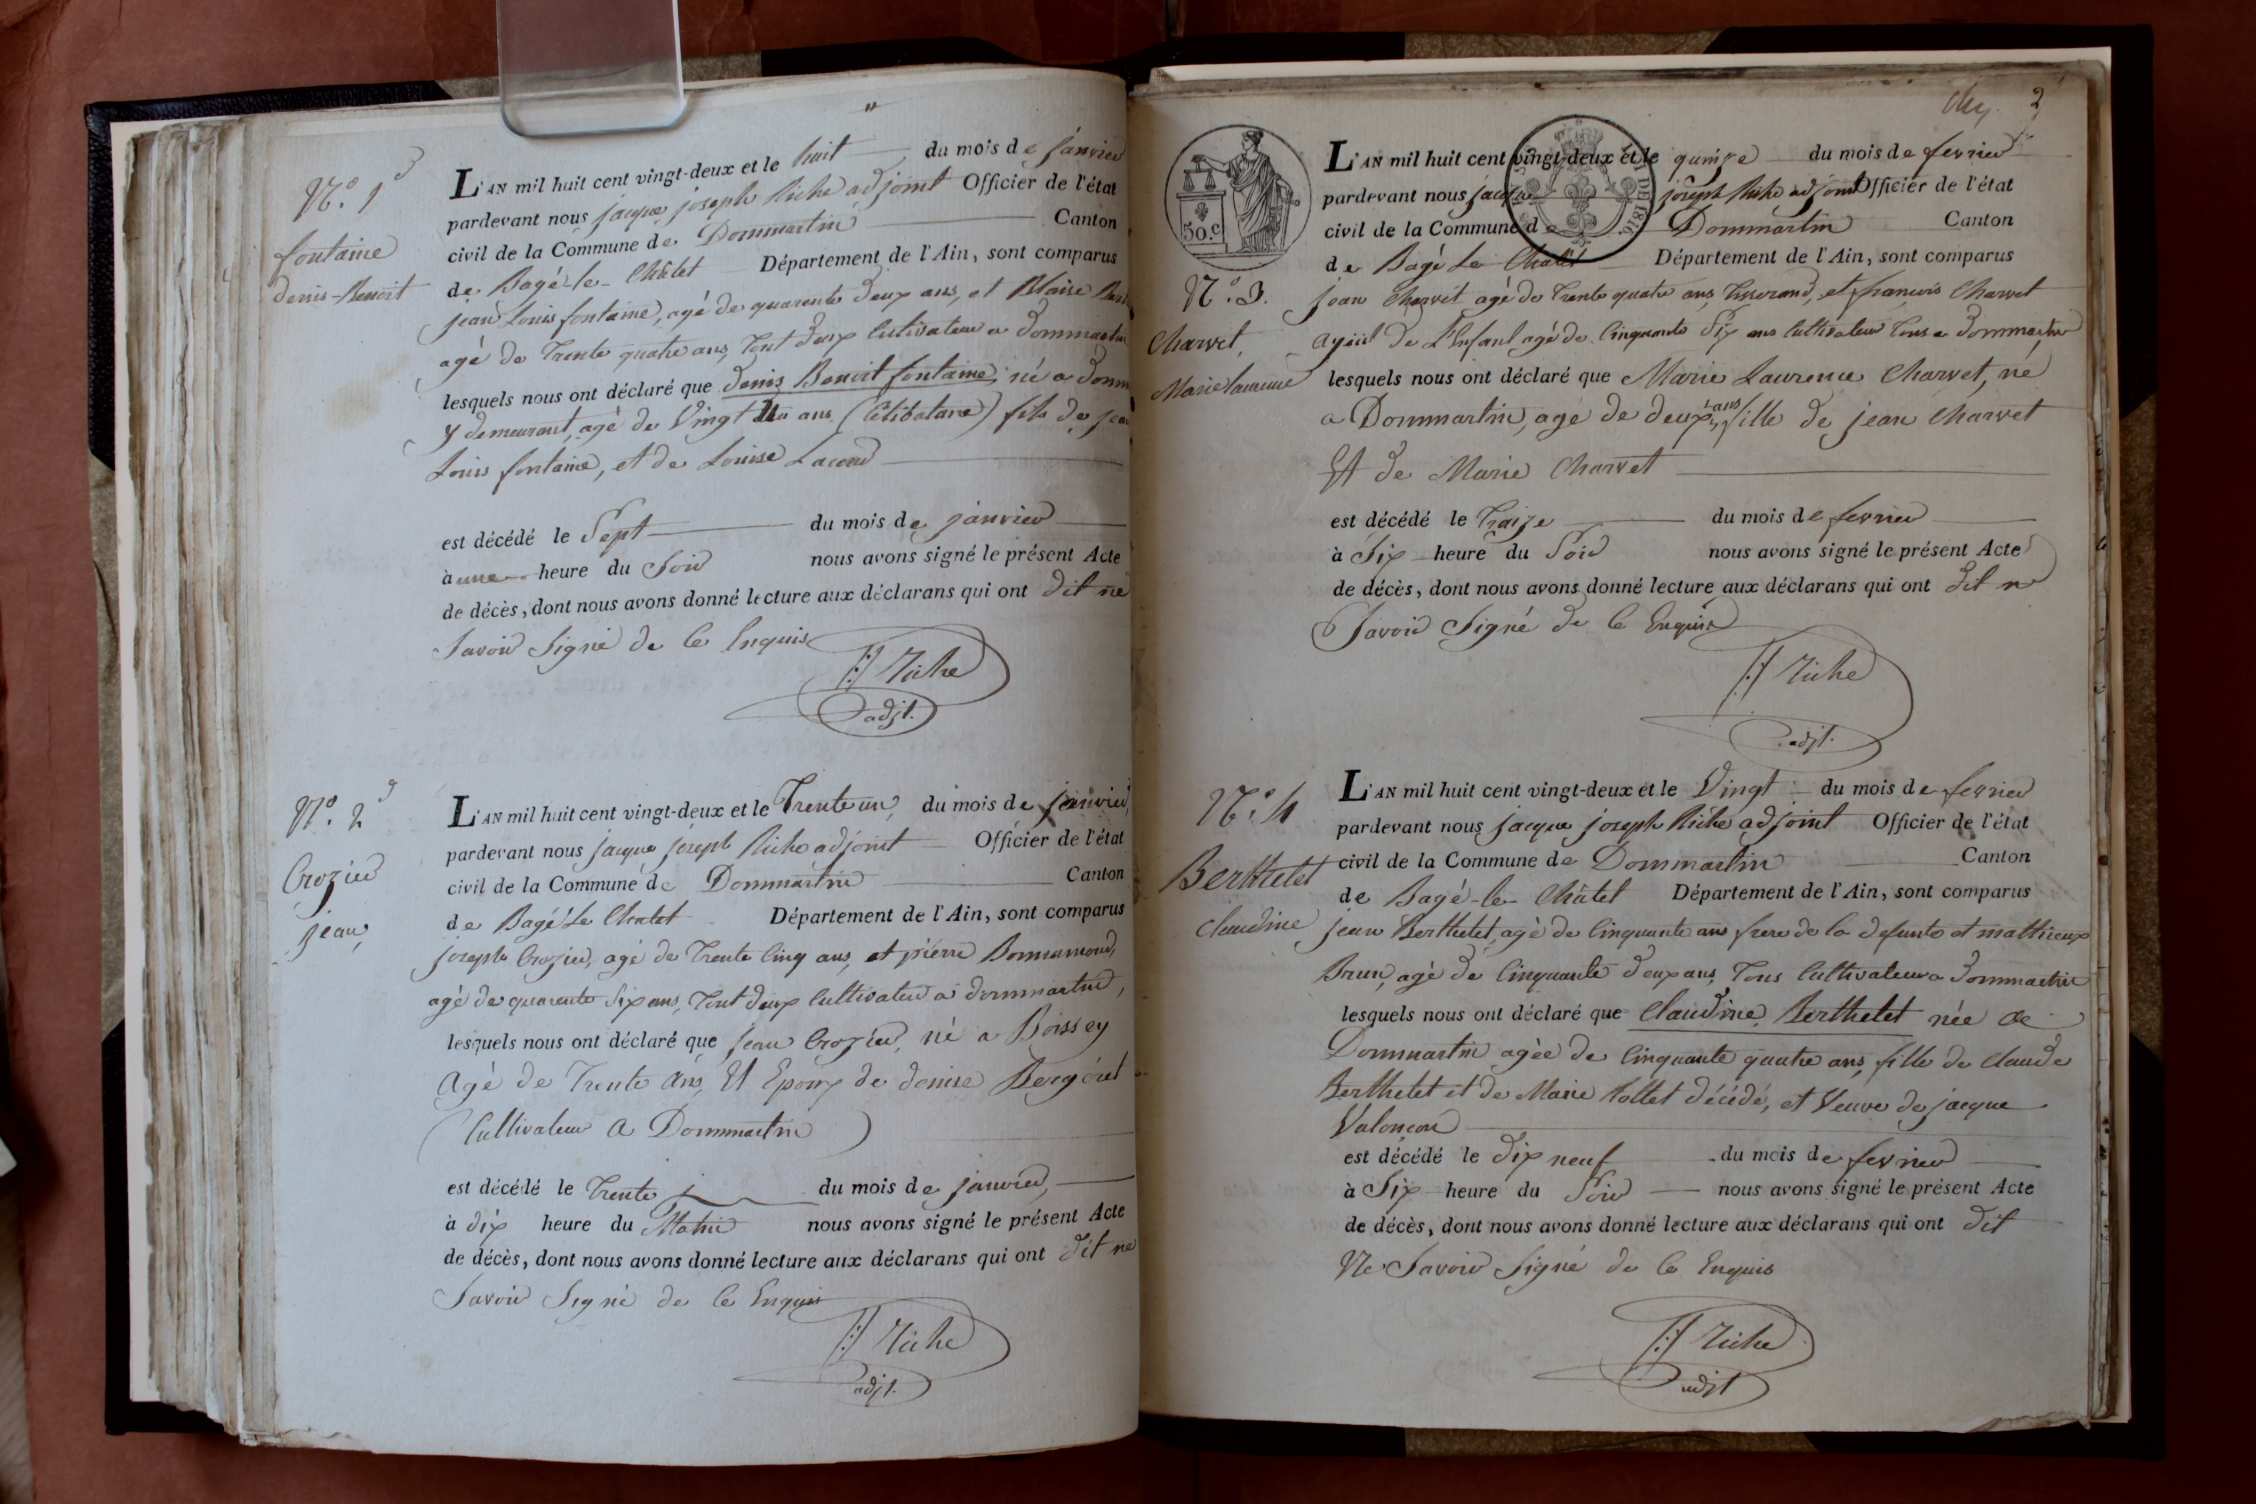 N.º 1
fontaine
denis-Benoit
L'AN mil huit cent vingt-deux et le huit du mois de janvier
pardevant nous jacque joseph Riche adjoint Officier de l'état
civil de la Commune de Dommartin Canton
de Bagé-le-Châtet Département de l'Ain, sont comparus
jean Louis fontaine, agé de quarente deux ans, et Blaise
agé de Trente quatre ans, tout deux Cultivateur a Dommartin
lesquels nous ont déclaré que denis Benoit fontaine, né a Domm
y demeurant, agé de Vingt un ans (Célibataire) fils de jean
Louis fontaine, et de Louise Lacour
est décédé le Sept du mois de janvier
à une heure du Soir nous avons signé le présent Acte
de décès, dont nous avons donné lecture aux déclarans qui ont dit ne
Savoir Signé de Ce Enquis
Riche
adjt.
N.º 2
Crozier
jean
L'AN mil huit cent vingt-deux et le Trente un du mois de janvier
pardevant nous jacque joseph Riche adjoint Officier de l'état
civil de la Commune de Dommartin Canton
de Bagé Le Chatet Département de l'Ain, sont comparus
joseph Crozier, agé de Trente Cinq ans, et pierre Bonnamour,
agé de quarente Six ans, Tout deux Cultivateur a dommartin,
lesquels nous ont déclaré que jean Crozier, né a Boissey
Agé de Trente ans, Et Epoux de denise Bergéret
(Cultivateur a Dommartin)
est décédé le Trente du mois de janvier
à dix heure du Matin nous avons signé le présent Acte
de décès, dont nous avons donné lecture aux déclarans qui ont dit ne
Savoir Signé de Ce Enquis
Riche
adjt.
2
50.c
DE 1816.
N.º 3.
Charvet,
Marie Laurence
L'AN mil huit cent vingt-deux et le quinze du mois de fevrier
pardevant nous jacque joseph Riche adjoint Officier de l'état
civil de la Commune de Dommartin Canton
de Bagé Le Chatet Département de l'Ain, sont comparus
jean Charvet agé de Trente quatre ans, Tisserand, et francois Charvet
ayeul de L'Enfant agé de Cinquante Six ans Cultivateur Tous a Dommartin
lesquels nous ont déclaré que Marie Laurence Charvet, né
a Dommartin, agé de deux ans, fille de jean Charvet
Et de Marie Charvet
est décédé le Traize du mois de fevrier
à Six heure du Soir nous avons signé le présent Acte
de décès, dont nous avons donné lecture aux déclarans qui ont dit ne
Savoir Signé de Ce Enquis
Riche
adjt.
N.º 4
Berthelet
Claudine
L'AN mil huit cent vingt-deux et le Vingt du mois de fevrier
pardevant nous jacque joseph Riche adjoint Officier de l'état
civil de la Commune de Dommartin Canton
de Bagé-le-Châtet Département de l'Ain, sont comparus
jean Berthelet, agé de Cinquante ans frere de la defunte et matthieux
Brun, agé de Cinquante deux ans, Tous Cultivateur a Dommartin
lesquels nous ont déclaré que Claudine Berthelet née de
Dommartin agée de Cinquante quatre ans, fille de Claude
Berthelet et de Marie Tollet décédé, et Veuve de jacque
Valonçon
est décédé le dix neuf du mois de fevrier
à Six heure du Soir nous avons signé le présent Acte
de décès, dont nous avons donné lecture aux déclarans qui ont dit
Ne Savoir Signé de Ce Enquis
Riche
adjt